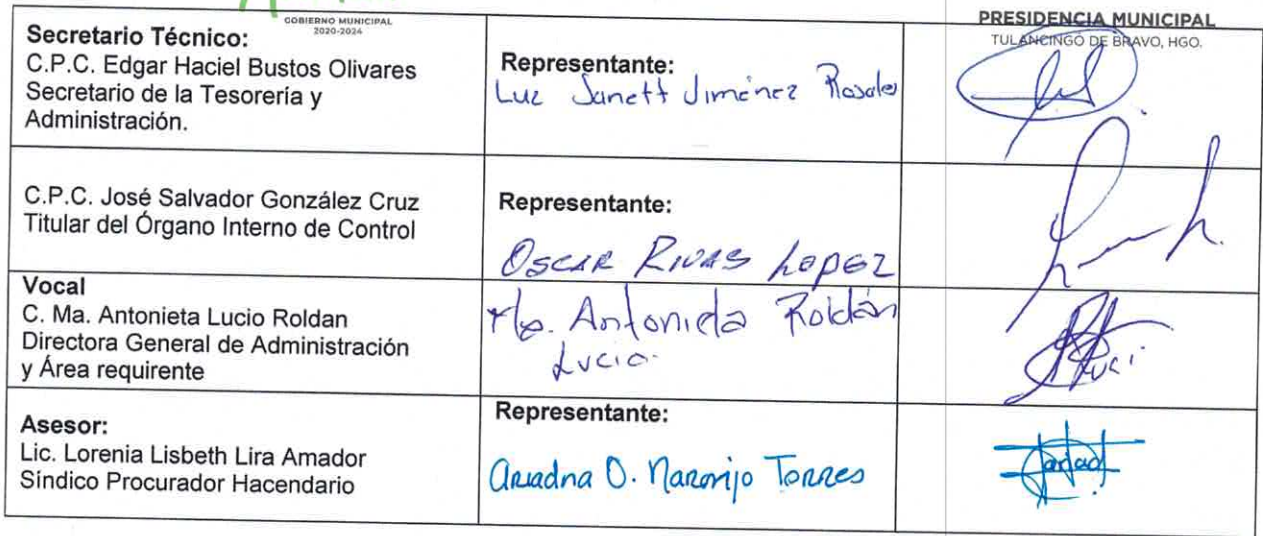 GOBIERNO MUNICIPAL
2020-2024
PRESIDENCIA MUNICIPAL
TULANCINGO DE BRAVO, HGO.
Secretario Técnico:
C.P.C. Edgar Haciel Bustos Olivares
Secretario de la Tesorería y
Administración.
Representante:
Luz Janett Jiménez Rosales
C.P.C. José Salvador González Cruz
Titular del Órgano Interno de Control
Representante:
OSCAR RIVAS LOPEZ
Vocal
C. Ma. Antonieta Lucio Roldan
Directora General de Administración
y Área requirente
Ma. Antonieta Roldán
Lucio.
Asesor:
Lic. Lorenia Lisbeth Lira Amador
Síndico Procurador Hacendario
Representante:
Ariadna O. Naranjo Torres